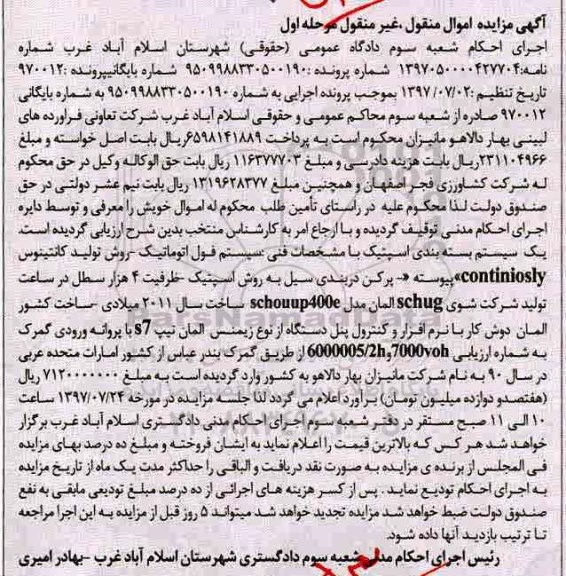 آگهی مزایده اموال منقول ،غیر منقول مرحله اول
اجرای احکام شعبه سوم دادگاه عمومی (حقوقی) شهرستان اسلام آباد غرب شماره
نامه:۱۳۹۷۰۵۰۰۰۰۴۲۷۷۰۴ شماره پرونده :۹۵۰۹۹۸۸۳۳۰۵۰۰۱۹۰ شماره بایگانیپرونده :۹۷۰۰۱۲
تاریخ تنظیم :۱۳۹۷/۰۷/۰۲ بموجب پرونده اجرایی به شماره ۹۵۰۹۹۸۸۳۳۰۵۰۰۱۹۰ به شماره بایگانی
۹۷۰۰۱۲ صادره از شعبه سوم محاکم عمومی و حقوقی اسلام آباد غرب شرکت تعاونی فراورده های
لبینی بهار دالاهو مانیزان محکوم است به پرداخت ۶۵۹۸۱۴۱۸۸۹ریال بابت اصل خواسته و مبلغ
۲۳۱۱۰۴۹۶۶ریال بابت هزینه دادرسی و مبلغ ۱۱۶۳۷۷۷۰۳ ریال بابت حق الوکاله وکیل در حق محکوم
له شرکت کشاورزی فجر اصفهان و همچنین مبلغ ۱۳۱۹۶۲۸۳۷۷ ریال بابت نیم عشر دولتی در حق
صندوق دولت لذا محکوم علیه در راستای تأمین طلب محکوم له اموال خویش را معرفی و توسط دایره
اجرای احکام مدنی توقیف گردیده و با ارجاع امر به کارشناس منتخب بدین شرح ارزیابی گردیده است.
یک سیستم بسته بندی اسپتیک با مشخصات فنی :سیستم فول اتوماتیک -روش تولید کانتینوس
continiosly»پیوسته «- پرکن دربندی سیل به روش اسپتیک -ظرفیت ۴ هزار سطل در ساعت
تولید شرکت شوی schug المان مدل schouup400e ساخت سال ۲۰۱۱ میلادی -ساخت کشور
المان دوش کار با نرم افزار و کنترول پنل دستگاه از نوع زیمنس المان تیپ s7 با پروانه ورودی گمرک
به شماره ارزیابی 7000voh و 6000005/2h از طریق گمرک بندر عباس از کشور امارات متحده عربی
در سال ۹۰ به نام شرکت مانیزان بهار دالاهو به کشور وارد گردیده است به مبلغ ۷۱۲۰۰۰۰۰۰۰ ریال
(هفتصدو دوازده میلیون تومان) برآورد اعلام می گردد لذا جلسه مزایده در مورخه ۱۳۹۷/۰۷/۲۴ ساعت
۱۰ الی ۱۱ صبح مستقر در دفتر شعبه سوم اجرای احکام مدنی دادگستری اسلام آباد غرب برگزار
خواهد شد هر کس که بالاترین قیمت را اعلام نماید به ایشان فروخته و مبلغ ده درصد بهای مزایده
فی المجلس از برنده ی مزایده به صورت نقد دریافت و الباقی را حداکثر مدت یک ماه از تاریخ مزایده
به اجرای احکام تودیع نماید . پس از کسر هزینه های اجرائی از ده درصد مبلغ تودیعی مابقی به نفع
صندوق دولت ضبط خواهد شد مزایده تجدید خواهد شد میتواند ۵ روز قبل از مزایده به این اجرا مراجعه
تا ترتیب بازدید آنها داده شود.
رئیس اجرای احکام مدنی شعبه سوم دادگستری شهرستان اسلام آباد غرب -بهادر امیری
ParsNamadData